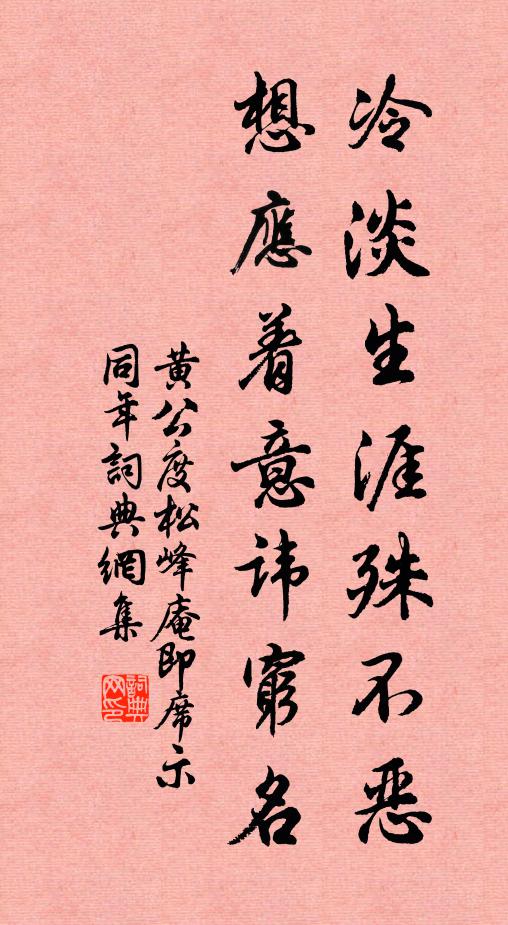 冷淡生涯殊不恶
想應着意諱窮名
黄公度松峰庵即席示
同年詞典網集
詞典网印